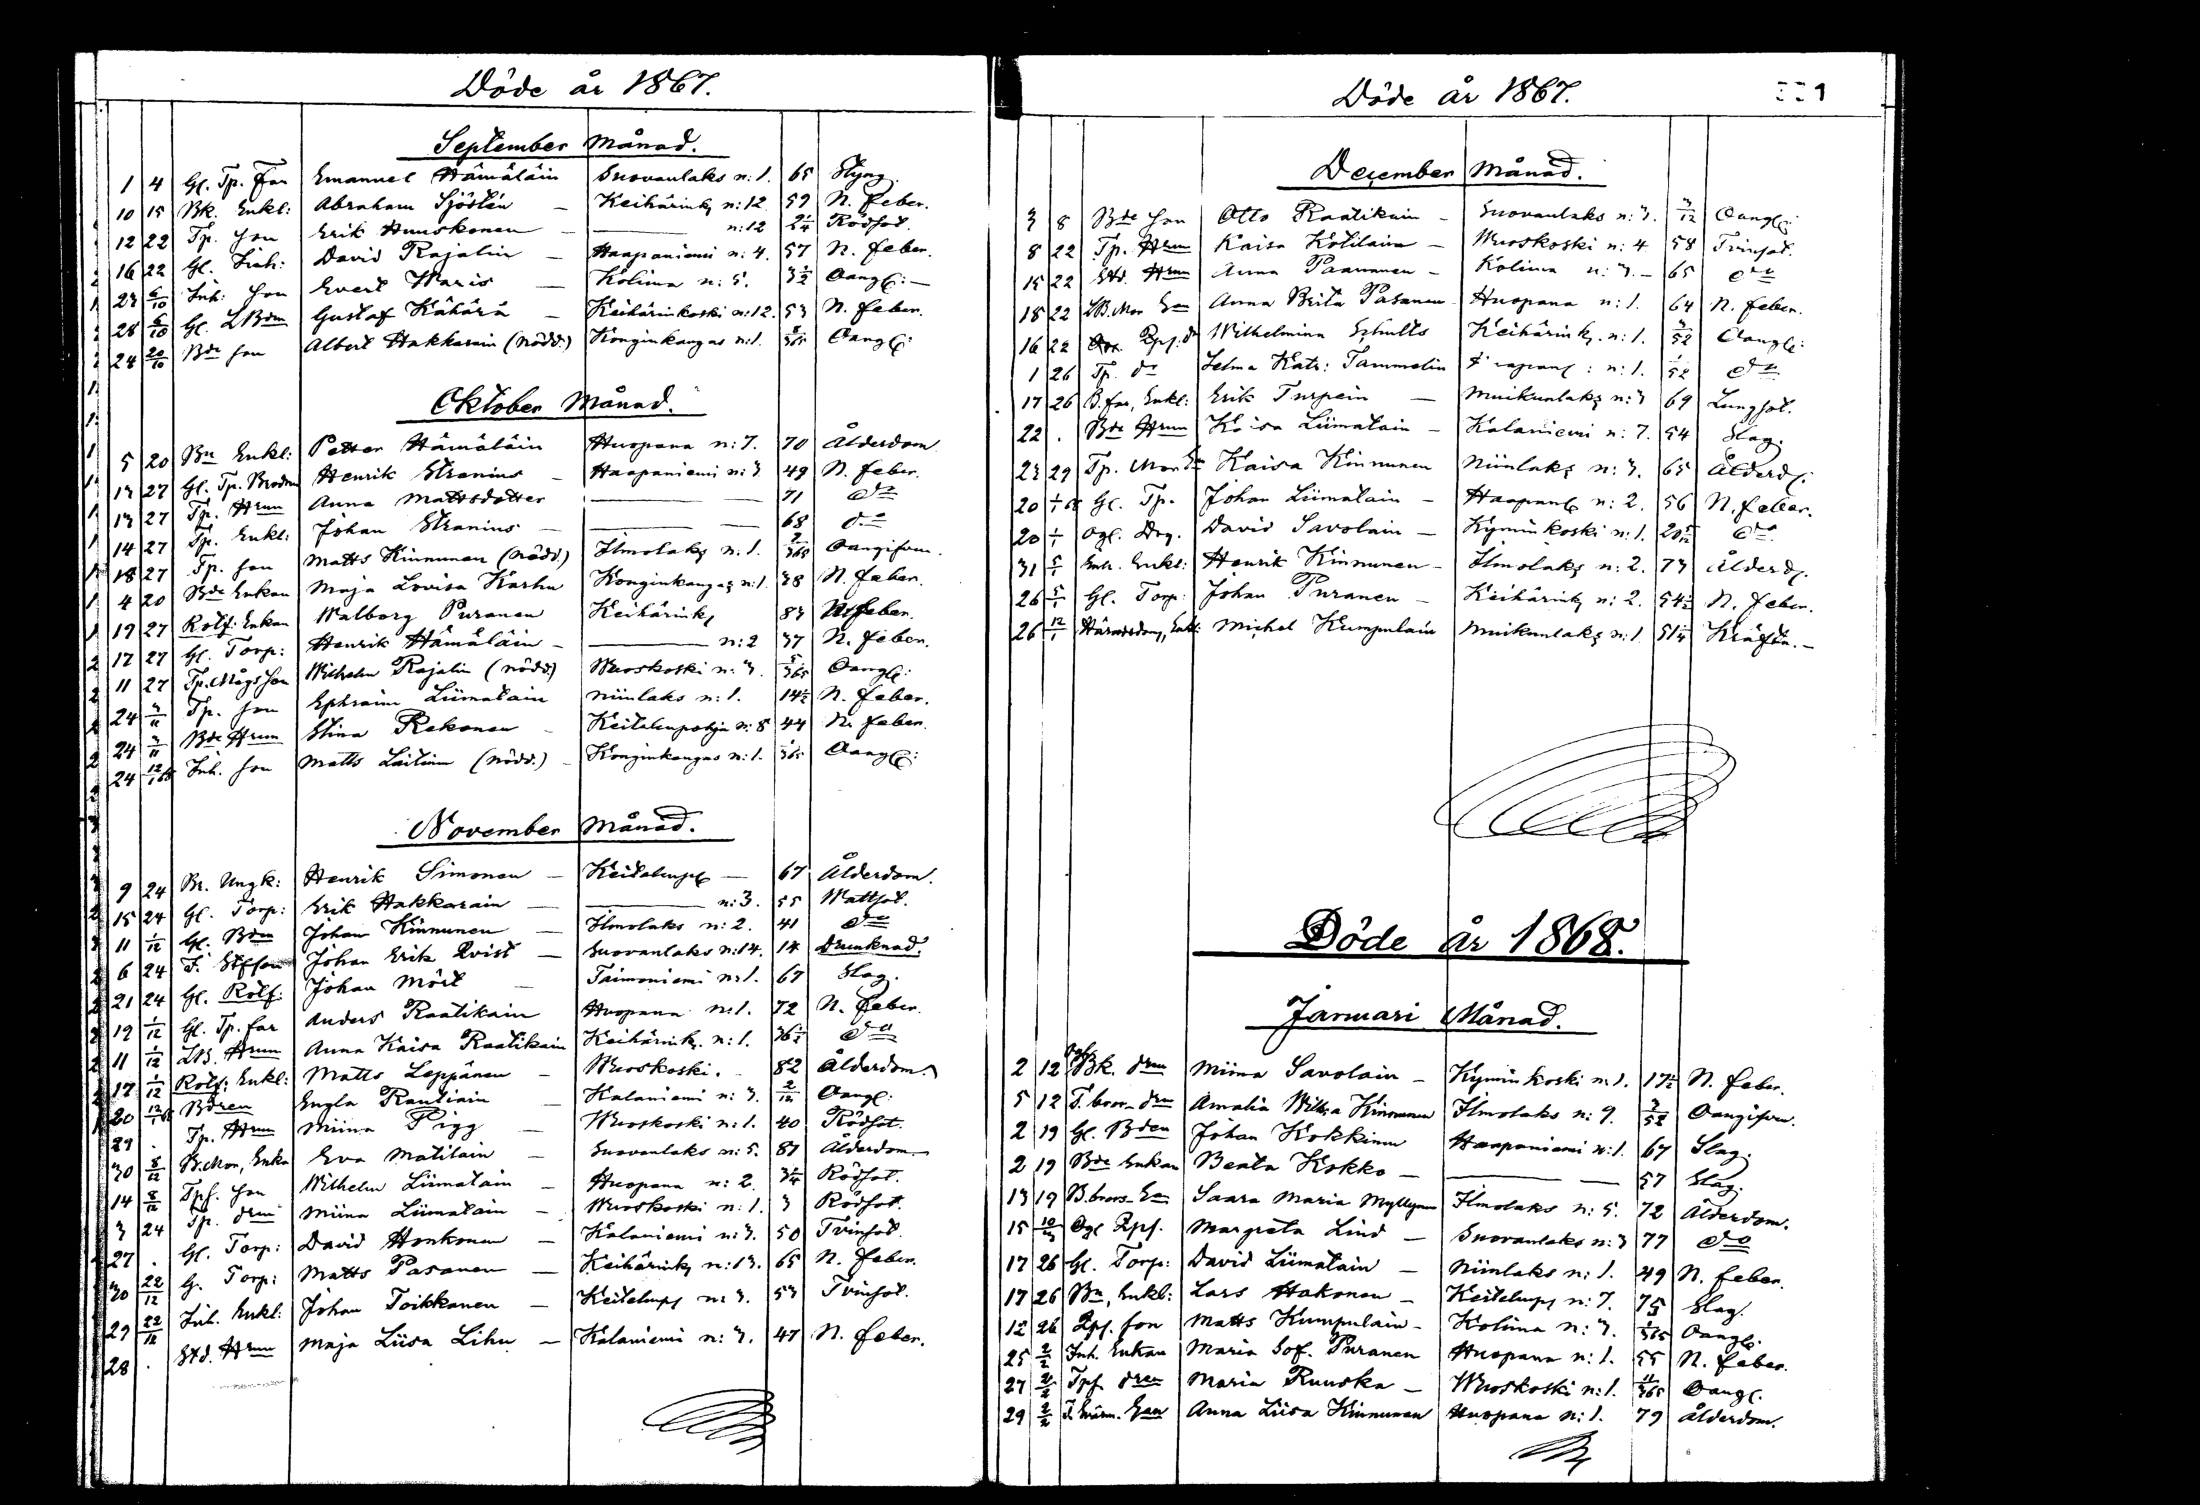 Döde år 1867.
September Månad.
1 4 Gl. Tp. Far Emanuel Hämäläin Suovanlaks n: 1. 65 Styng.
10 15 Bk. Enkl: Abraham Sjöstén — Keihärink n: 12 59 N. Feber.
12 22 Tp. Son Erik Huuskonen — n: 12 2 1/4 Rödsot.
16 22 Gl. Inh: David Rajalin — Haapaniemi n: 4. 57 N. Feber.
23 6/10 Inh: Son Evert Waris — Kolima n: 5. 3 1/2 Oang: —
28 6/10 Gl. LBden Gustaf Kähärä — Keihärinkoski n: 12. 53 N. Feber.
24 20/10 Bde Son Albert Hakkarain (nödd.) Konginkangas n: 1. Oang:
Oktober Månad.
5 20 Bn Enkl: Petter Hämäläin Huopana n: 7. 70 Ålderdom
13 27 Gl. Tp. Brodren Henrik Stranius — Haapaniemi n: 3 49 N. Feber.
13 27 Tp. Hrun Anna Mattsdotter — 71 do
14 27 Tp. Enkl: Johan Stranius — 68 do
18 27 Tp. Son Matts Kinnunen (nödd.) Ilmolaks n: 1. 2/365 Oangifven.
4 20 Bde Enkan Maja Lovisa Karhu Konginkangas n: 1. 38 N. Feber.
19 27 Rotf: Enkan Walborg Puranen Keihärink 83 N. Feber.
17 27 Gl. Torp: Henrik Hämäläin — n: 2 37 N. Feber.
11 27 Tp. Mågs Son Wilhelm Rajalin (nödd.) Wuoskoski n: 3. 5/365 Oang:
24 3/11 Tp. Son Ephraim Liimatain Niinlaks n: 1. 14 1/2 N. Feber.
24 3/11 Bde Hrun Stina Rekonen — Keitelenpohja n: 8 44 N. Feber.
24 12/1 68 Inh. Son Matts Laitinen (nödd.) — Konginkangas n: 1. 1/365 Oang:
November Månad.
9 24 Bn. Ungk: Henrik Simonen — Keitelenp — 67 Ålderdom.
15 24 Gl. Torp: Erik Hakkarain — n: 3. 55 Wattsot.
11 1/12 Gl. Bden Johan Kinnunen — Ilmolaks n: 2. 41 do
6 24 Johan Erik Qvist — Suovanlaks n: 14. 14 Drunknad.
21 24 Gl. Rotf: Johan Mört — Taimoniemi n: 1. 67 Slag.
19 1/12 Gl. Tp. Far Anders Raatikain Huopana n: 1. 72 N. Feber.
11 1/12 LB. Hrun Anna Kaisa Raatikain Keihärink. n: 1. 36 1/2 do
17 1/12 Rotf: Enkl: Matts Leppänen — Wuoskoski. 82 Ålderdom.
20 12/1 68 Bdren Engla Rautiain — Kalaniemi n: 3. 2/12 Oang:
29 . Tp. Hrun Miina Pigg — Wuoskoski n: 1. 40 Rödsot.
30 8/12 B. Mor, Enka Eva Matilain — Suovanlaks n: 5. 87 Ålderdom.
14 8/12 Tpf. Son Wilhelm Liimatain — Huopana n: 2. 3 1/4 Rödsot.
3 24 Tp. dren Miina Liimatain — Wuoskoski n: 1. 3 Rödsot.
27 . Gl. Torp: David Honkonen — Kalaniemi n: 3. 50 Tvinsot.
30 22/12 G. Torp: Matts Pasanen — Keihärink n: 13. 65 N. Feber.
29 22/12 Inh. Enkl: Johan Toikkanen — Keitelenp n: 3. 53 Tvinsot.
28 . Std. Hrun Maja Liisa Lihu — Kalaniemi n: 3. 47 N. Feber.
Döde år 1867.
1
December Månad.
3 8 Bde Son Otto Raatikain — Suovanlaks n: 3. 3/12 Oang:
8 22 Tp. Hrun Kaisa Kotilain — Wuoskoski n: 4 58 Tvinsot.
15 22 Std. Hrun Anna Paananen — Kolima n: 3. — 65 do
18 22 LB. Mor Anna Brita Pasanen — Huopana n: 1. 64 N. Feber.
16 22 Wilhelmina Schults Keihärink. n: 1. 3/52 Oang:
1 26 Tp. dr Selma Katr: Tammelin n: 1. 1/52 do
17 26 B. far, Enkl: Erik Turpein — Muikunlaks n: 3 69 Lungsot.
22 . Bde Hrun Kaisa Liimatain — Kalaniemi n: 7. 54 Slag.
23 29 Tp. Mor Kaisa Kinnunen Niinlaks n: 3. 65 Ålderd.
20 1/1 68 Gl. Tp. Johan Liimatain — Haapan n: 2. 56 N. Feber.
20 1/1 Ogl. Drg. David Savolain — Kyminkoski n: 1. do
31 5/1 Enkl: Henrik Kinnunen — Ilmolaks n: 2. 73 Ålderd.
26 5/1 Gl. Torp: Johan Puranen — Keihärink n: 2. 54 1/2 N. Feber.
26 12/1 Michel Kumpulain Muikunlaks n: 1. 51 1/4 Kräftan. —
Döde år 1868.
Januari Månad.
2 12 Bk. dren Miina Savolain — Kyminkoski n: 1. 17 1/2 N. Feber.
5 12 T. bror— dren Amalia Wilh:a Kinnunen Ilmolaks n: 9. 3/52 Oangifven.
2 19 Gl. Bden Johan Kokkinen Haapaniemi n: 1. 67 Slag.
2 19 Bde Enkan Beata Kokko — 57 Slag.
13 19 B. brors— Saara Maria Myllynen Ilmolaks n: 5. 72 Ålderdom.
15 Ogl Margeta Lind — Suovanlaks n: 3 77 do
17 26 Gl. Torp: David Liimatain — Niinlaks n: 1. 49 N. Feber.
17 26 Bn, Enkl: Lars Hakonen — Keitelenp n: 7. 75 Slag.
12 26 Son Matts Kumpulain — Kolima n: 3. 1/365 Oang:
25 2/2 Inh. Enkan Maria Sof. Puranen Huopana n: 1. 55 N. Feber.
27 2/2 Tpf. dren Maria Ruuska — Wuoskoski n: 1. 11/365 Oang.
29 2/2 Anna Liisa Kinnunen Huopana n: 1. 79 Ålderdom.